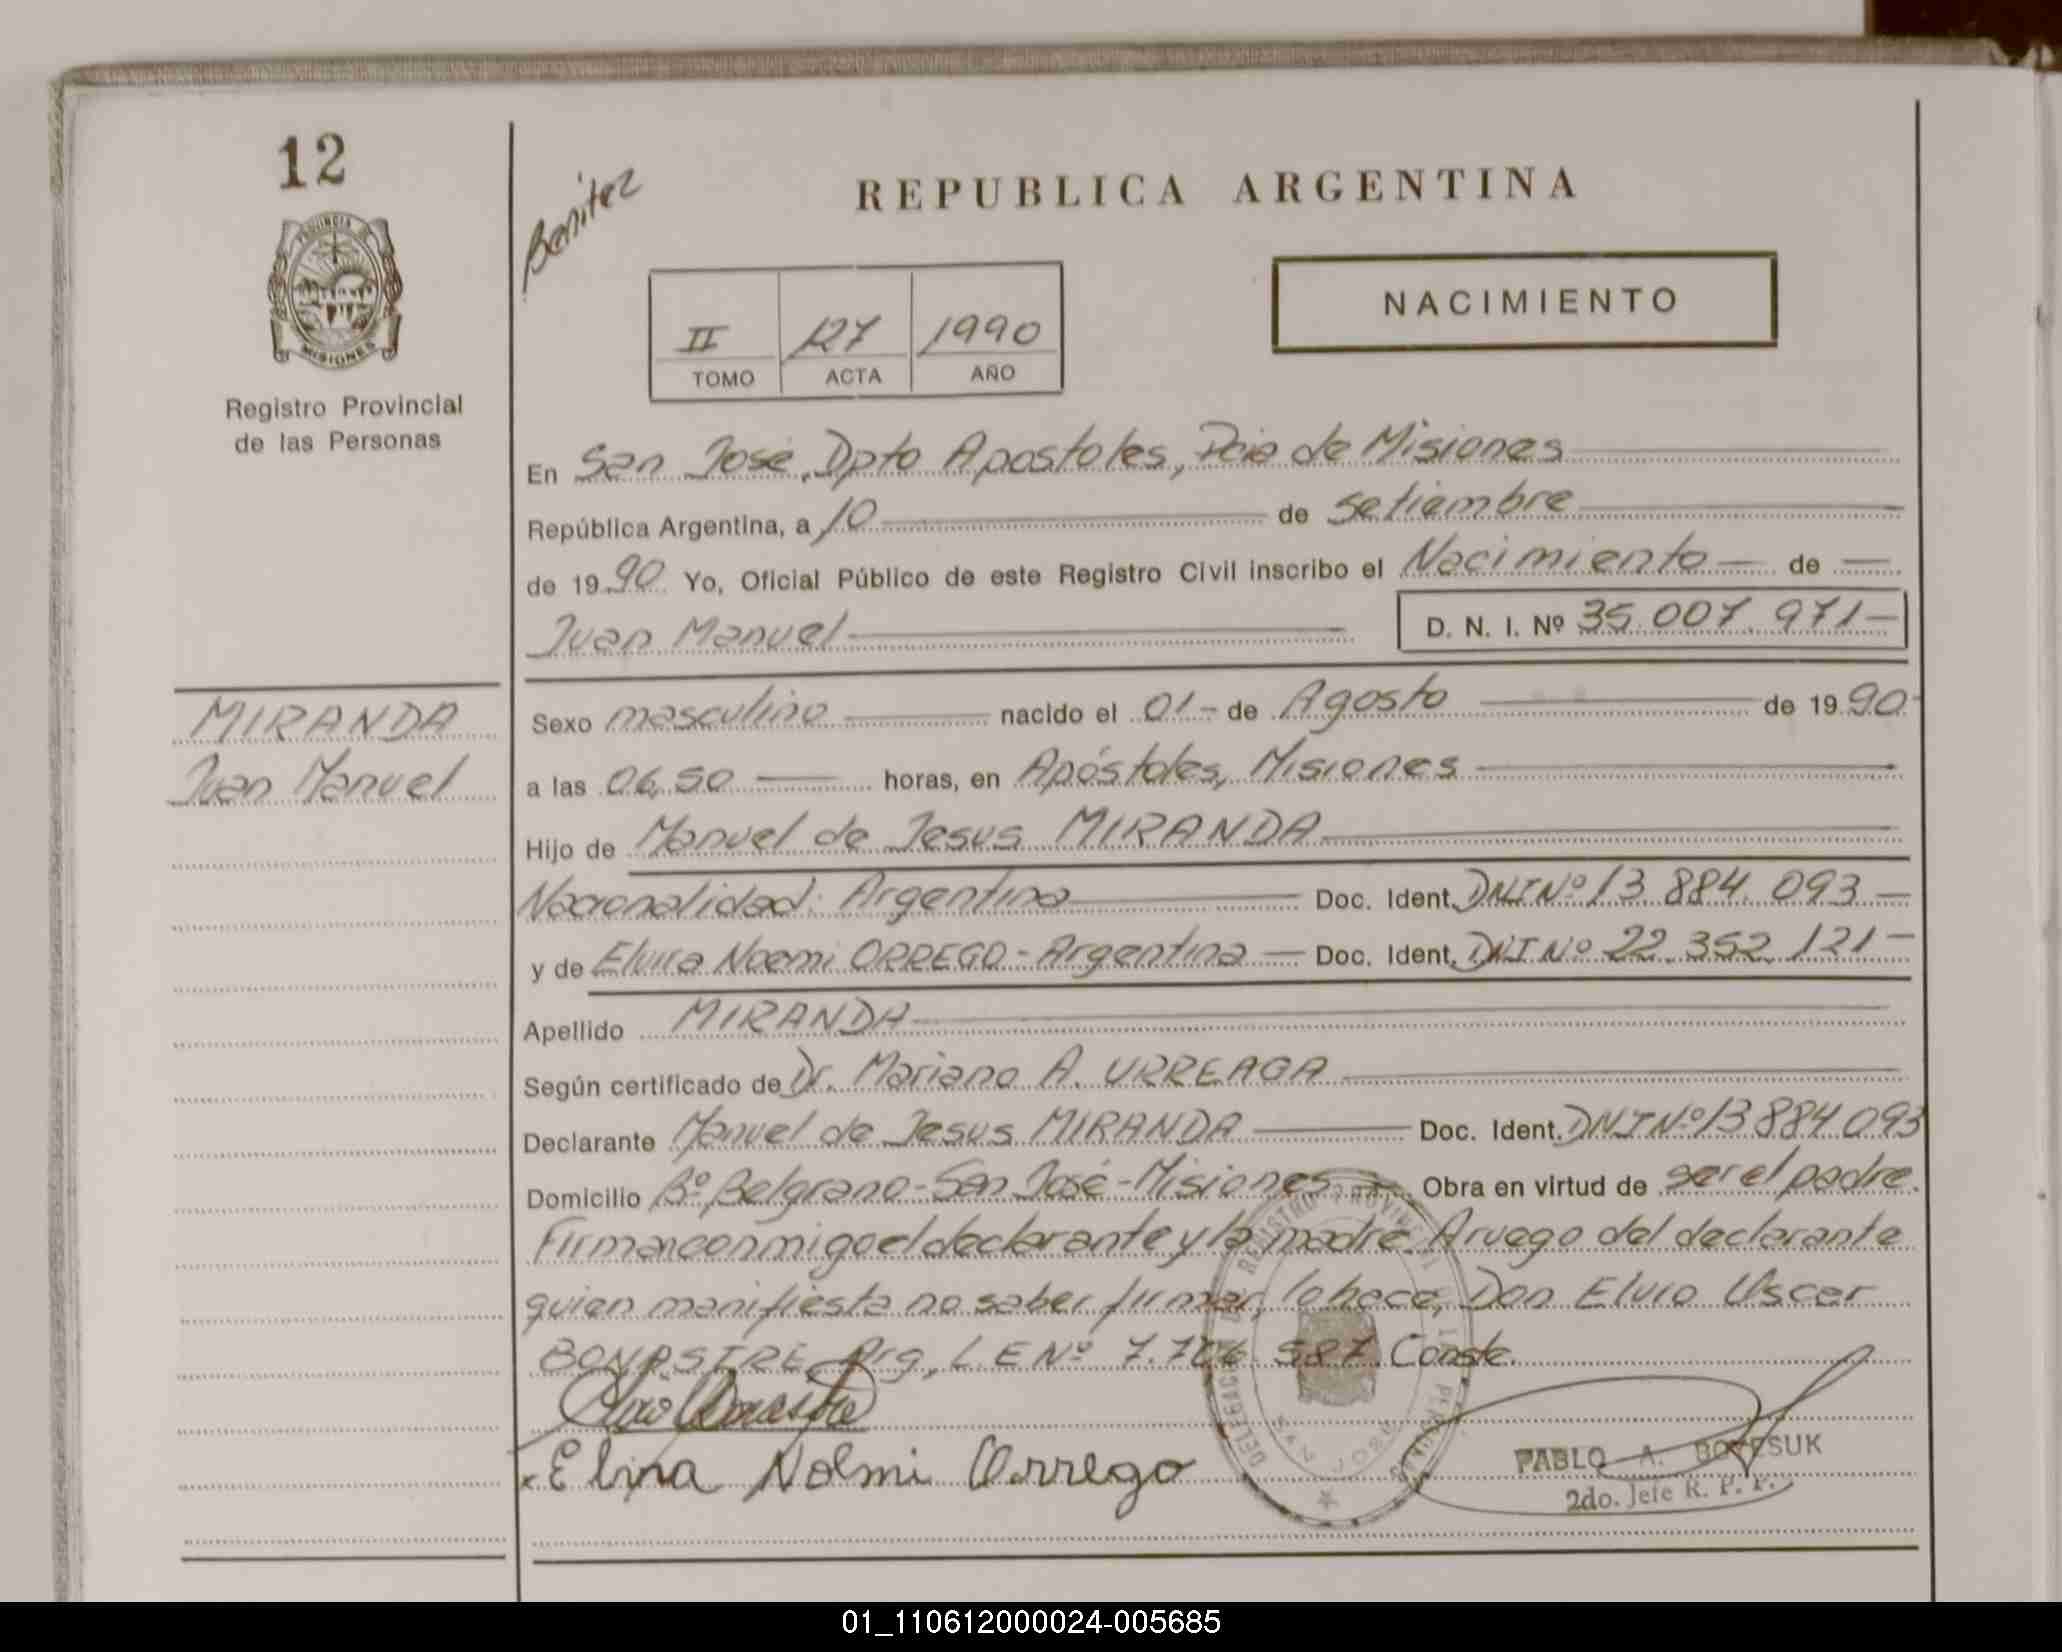 12
PROVINCIA DE
MISIONES
Registro Provincial
de las Personas
MIRANDA
Juan Manuel
Benitez
REPUBLICA ARGENTINA
NACIMIENTO
II 127 1990
TOMO ACTA AÑO
En San José, Dpto Apostoles, Pcia de Misiones
República Argentina, a 10 de setiembre
de 1990 Yo, Oficial Público de este Registro Civil inscribo el Nacimiento de
Juan Manuel D. N. I. Nº 35.007.971
Sexo masculino nacido el 01 de Agosto de 1990
a las 06,50 horas, en Apóstoles, Misiones
Hijo de Manuel de Jesus MIRANDA
Nacionalidad: Argentina Doc. Ident. DNI Nº 13.884.093
y de Elvira Noemi ORREGO - Argentina Doc. Ident. DNI Nº 22.352.121
Apellido MIRANDA
Según certificado de Dr. Mariano A. URREAGA
Declarante Manuel de Jesus MIRANDA Doc. Ident. DNI Nº 13884093
Domicilio Bº Belgrano - San José - Misiones Obra en virtud de ser el padre.
Firman conmigo el declarante y la madre. A ruego del declarante
quien manifiesta no saber firmar, lo hace, Don Elvio Oscar
BONASTRE Arg, L.E Nº 7.706.587. Conste.
Elvira Nolmi Orrego
PABLO A.
2do. Jefe R. P. P.
DELEGACION REGISTRO PROVINCIAL DE LAS PERSONAS
SAN JOSE
01_110612000024-005685